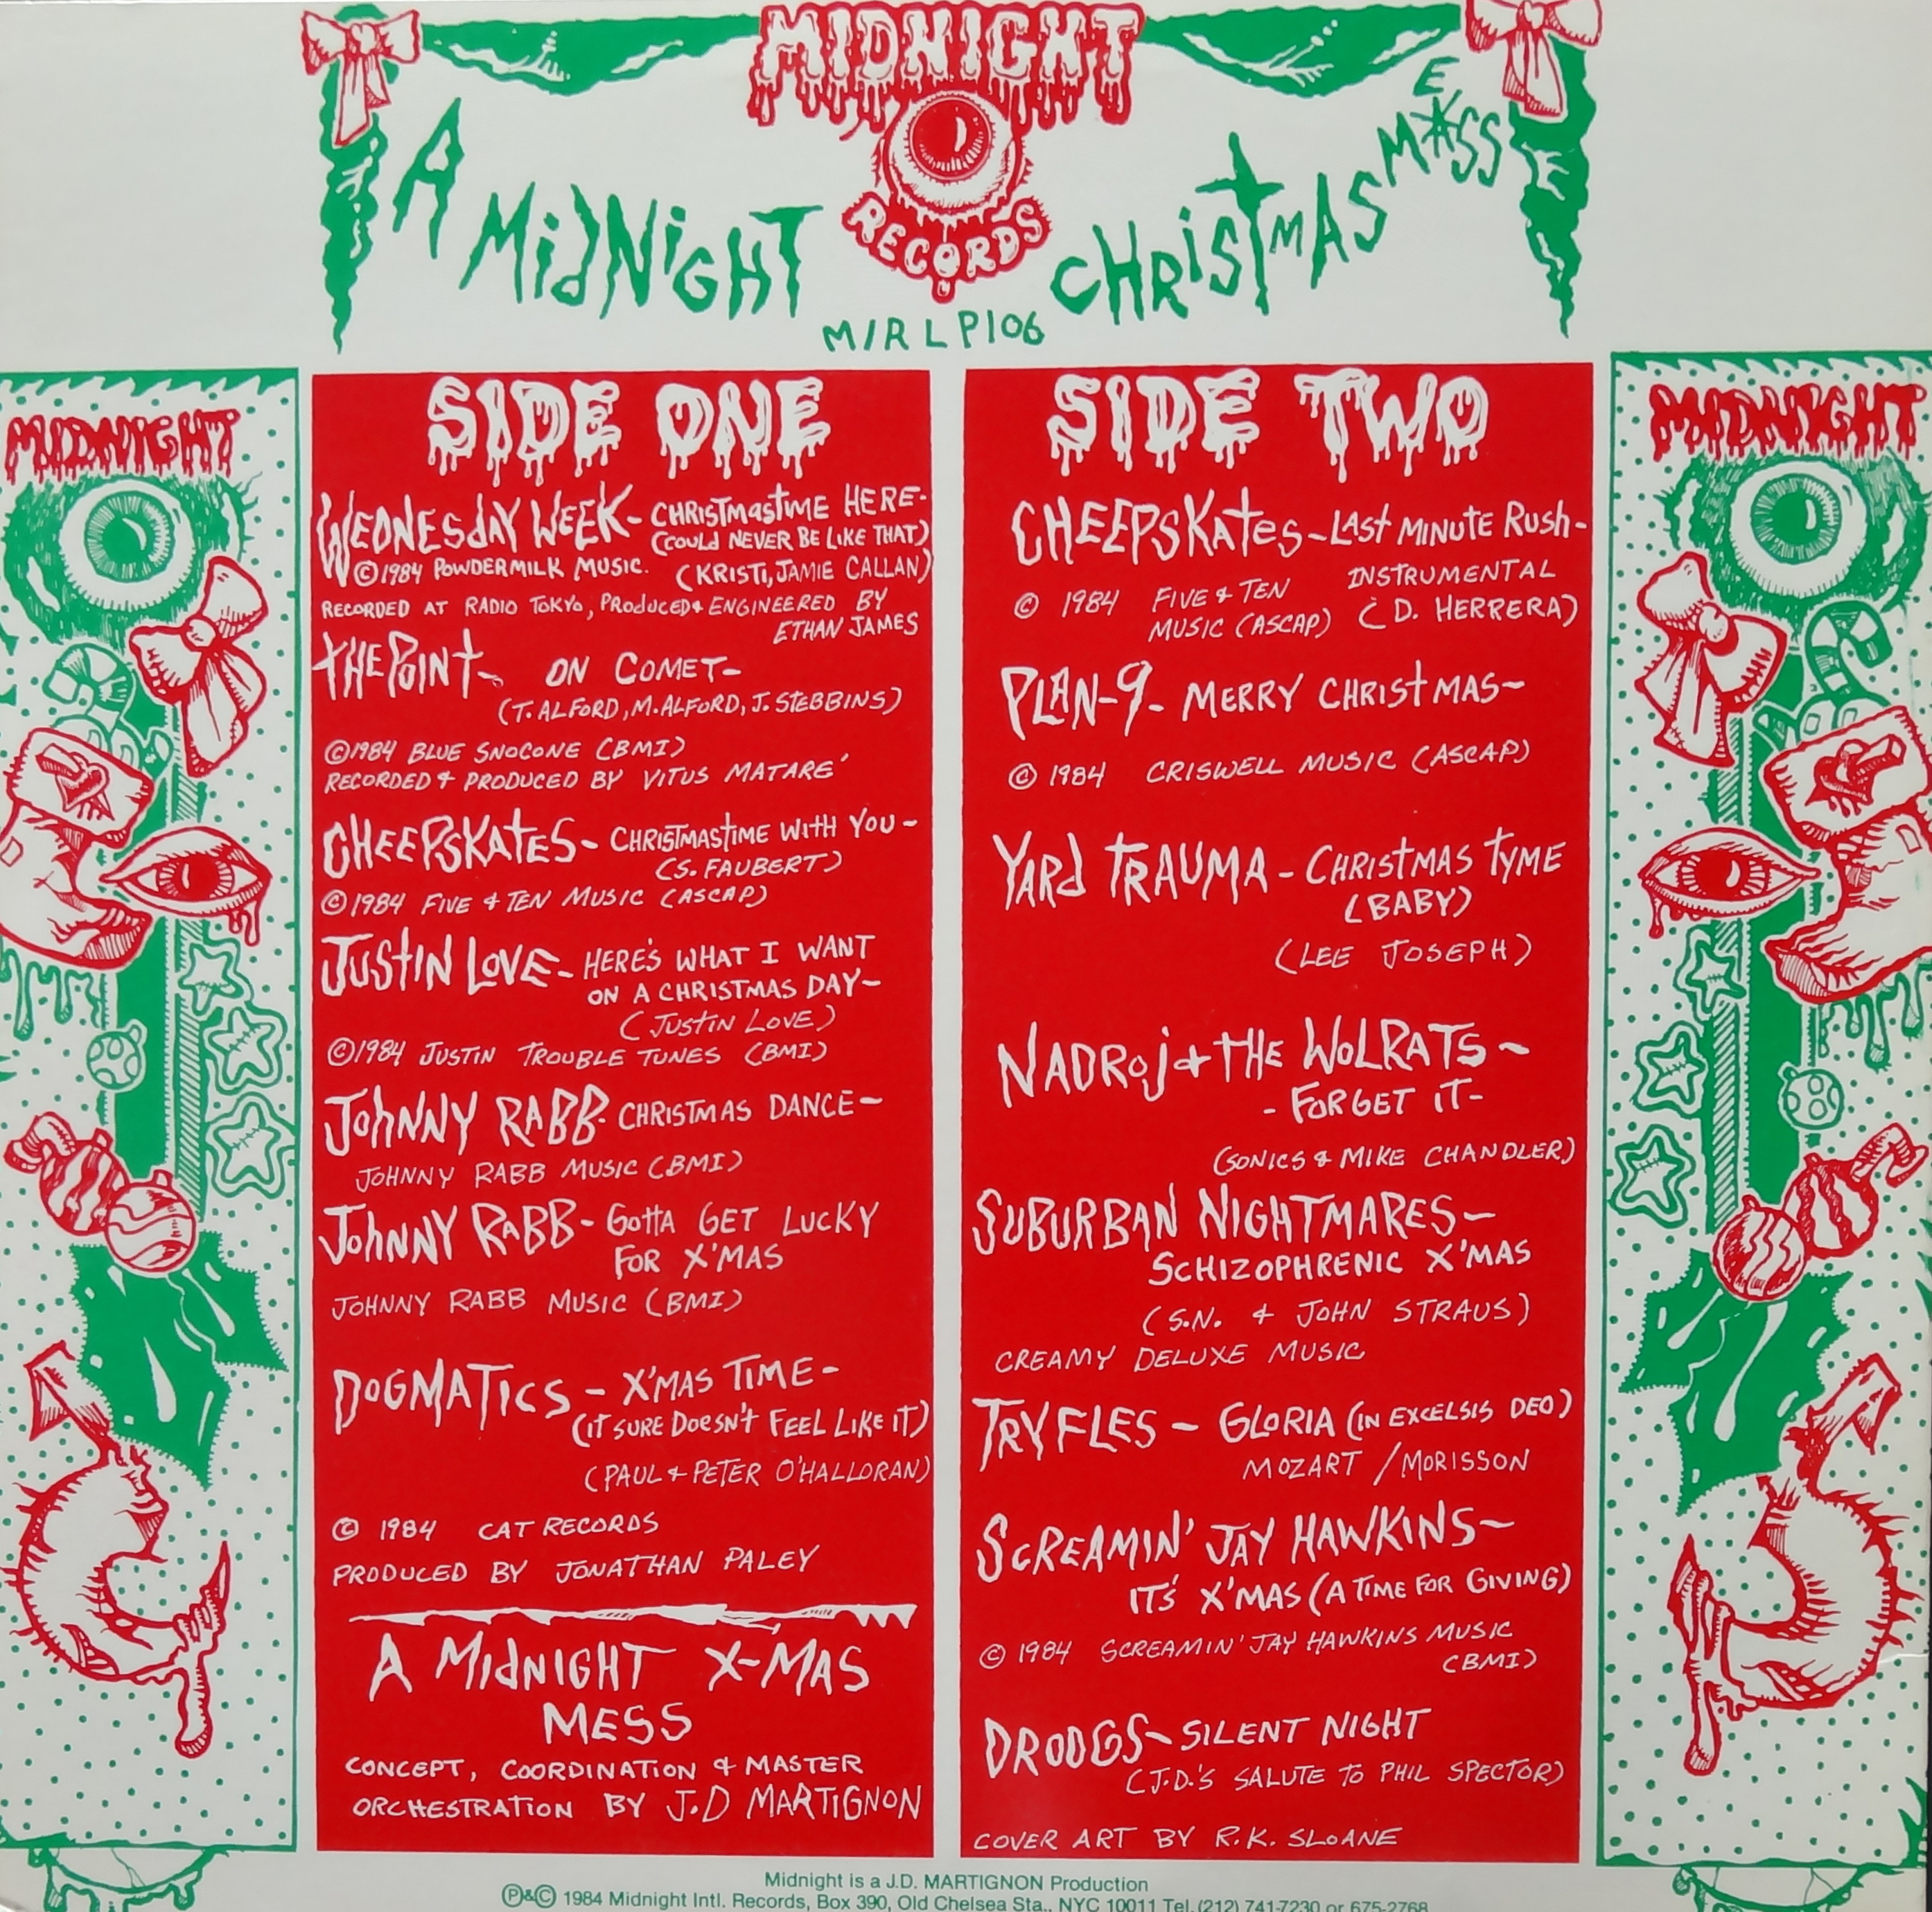 MIDNIGHT
RECORDS
A MIDNIGHT CHRISTMAS M*SS
E
M/RLP106
MIDNIGHT
SIDE ONE
WEDNESDAY WEEK - CHRISTMASTIME HERE-
(COULD NEVER BE LIKE THAT)
©1984 POWDERMILK MUSIC. (KRISTI, JAMIE CALLAN)
RECORDED AT RADIO TOKYO, PRODUCED & ENGINEERED BY
ETHAN JAMES
THE POINT - ON COMET-
(T. ALFORD, M. ALFORD, J. STEBBINS)
©1984 BLUE SNOCONE (BMI)
RECORDED & PRODUCED BY VITUS MATARE'
CHEEPSKATES - CHRISTMASTIME WITH YOU -
(S. FAUBERT)
©1984 FIVE & TEN MUSIC (ASCAP)
JUSTIN LOVE - HERE'S WHAT I WANT
ON A CHRISTMAS DAY -
(JUSTIN LOVE)
©1984 JUSTIN TROUBLE TUNES (BMI)
JOHNNY RABB - CHRISTMAS DANCE -
JOHNNY RABB MUSIC (BMI)
JOHNNY RABB - GOTTA GET LUCKY
FOR X'MAS
JOHNNY RABB MUSIC (BMI)
DOGMATICS - X'MAS TIME -
(IT SURE DOESN'T FEEL LIKE IT)
(PAUL & PETER O'HALLORAN)
© 1984 CAT RECORDS
PRODUCED BY JONATHAN PALEY
A MIDNIGHT X-MAS
MESS
CONCEPT, COORDINATION & MASTER
ORCHESTRATION BY J.D MARTIGNON
SIDE TWO
CHEEPSKATES - LAST MINUTE RUSH -
INSTRUMENTAL
© 1984 FIVE & TEN (D. HERRERA)
MUSIC (ASCAP)
PLAN-9 - MERRY CHRISTMAS -
© 1984 CRISWELL MUSIC (ASCAP)
YARD TRAUMA - CHRISTMAS TYME
(BABY)
(LEE JOSEPH)
NADROJ & THE WOLRATS -
- FORGET IT -
(SONICS & MIKE CHANDLER)
SUBURBAN NIGHTMARES -
SCHIZOPHRENIC X'MAS
(S.N. & JOHN STRAUS)
CREAMY DELUXE MUSIC
TRYFLES - GLORIA (IN EXCELSIS DEO)
MOZART / MORISSON
SCREAMIN' JAY HAWKINS -
IT'S X'MAS (A TIME FOR GIVING)
© 1984 SCREAMIN' JAY HAWKINS MUSIC
(BMI)
DROOGS - SILENT NIGHT
(J.D.'S SALUTE TO PHIL SPECTOR)
COVER ART BY R.K. SLOANE
MIDNIGHT
Midnight is a J.D. MARTIGNON Production
Ⓟ&© 1984 Midnight Intl. Records, Box 390, Old Chelsea Sta., NYC 10011 Tel. (212) 741-7230 or 675-2768